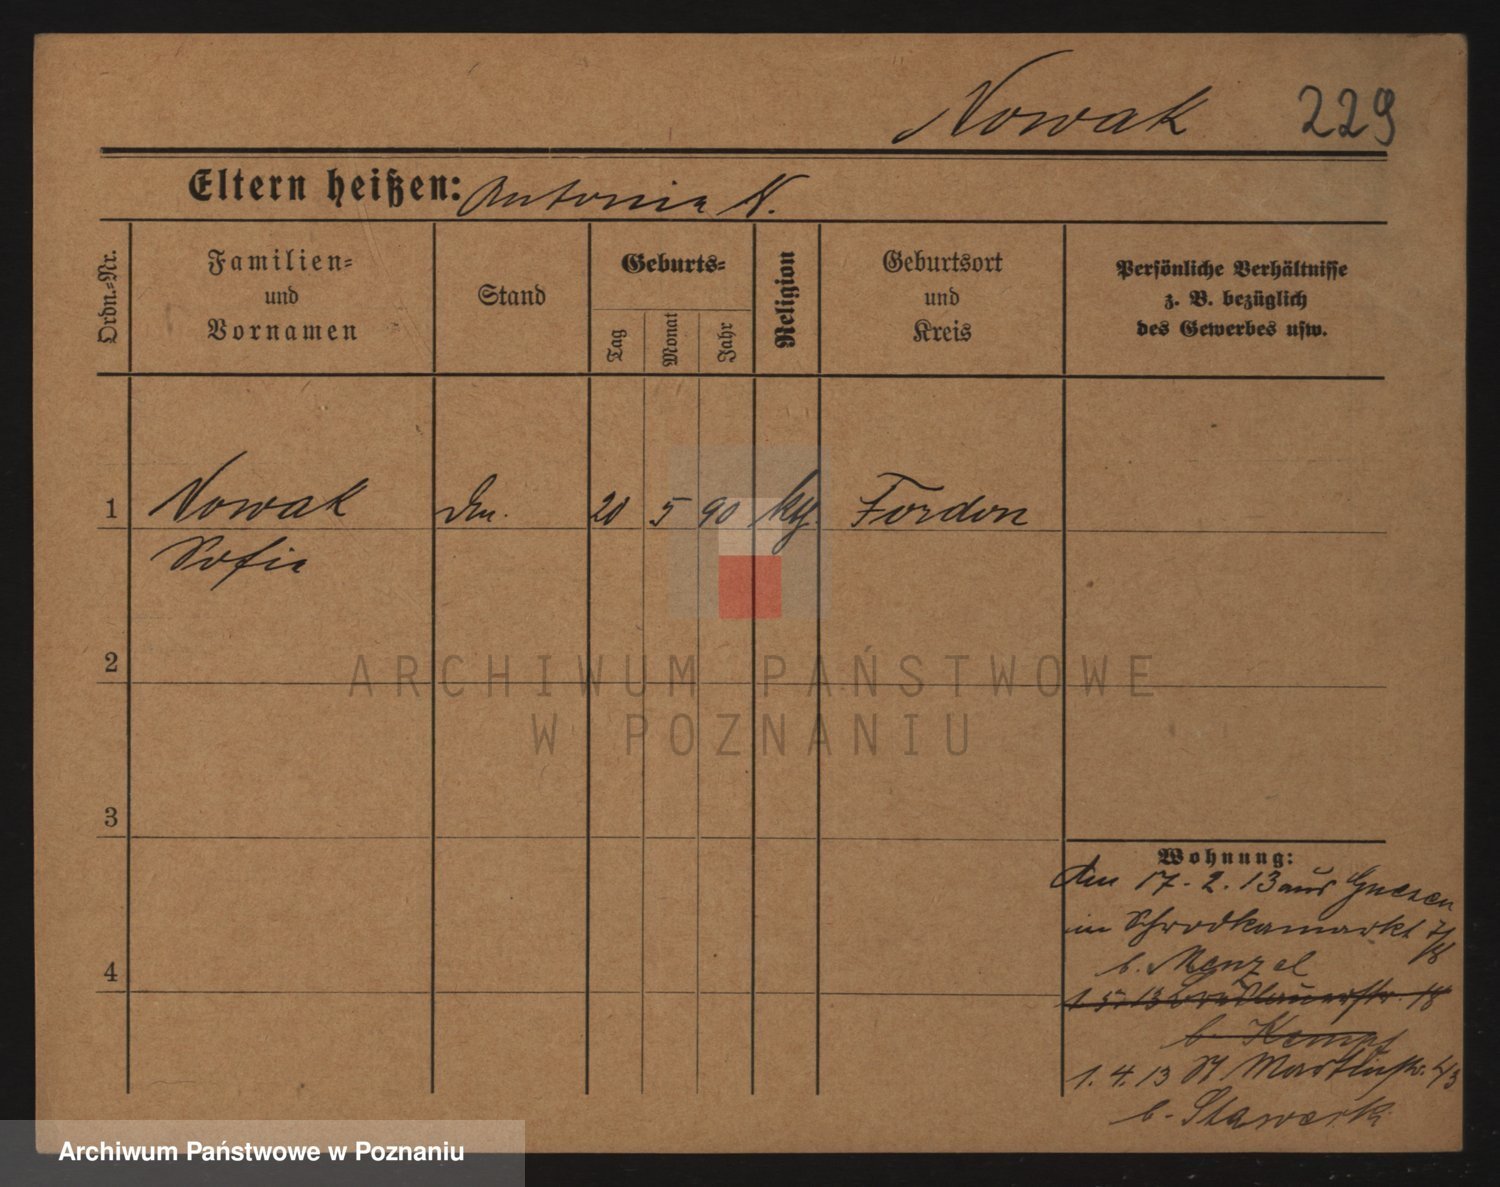 Nowak 229
Eltern heißen: Antonie N.
Ordn.-Nr.
Familien-
und
Vornamen
Stand
Geburts-
Tag
Monat
Jahr
Religion
Geburtsort
und
Kreis
Persönliche Verhältnisse
z. B. bezüglich
des Gewerbes usw.
1 Nowak 20 5 90 Fordon
Sofie
2
ARCHIWUM PAŃSTWOWE
W POZNANIU
3
Wohnung:
17-2.13 aus Gnesen
im Schrodkamarkt 7/
b. Menzel
1.5.13 Breslauerstr. 18
b. Kempf
1.4.13 St Martinstr. 4/3
b. Stawerk
4
Archiwum Państwowe w Poznaniu